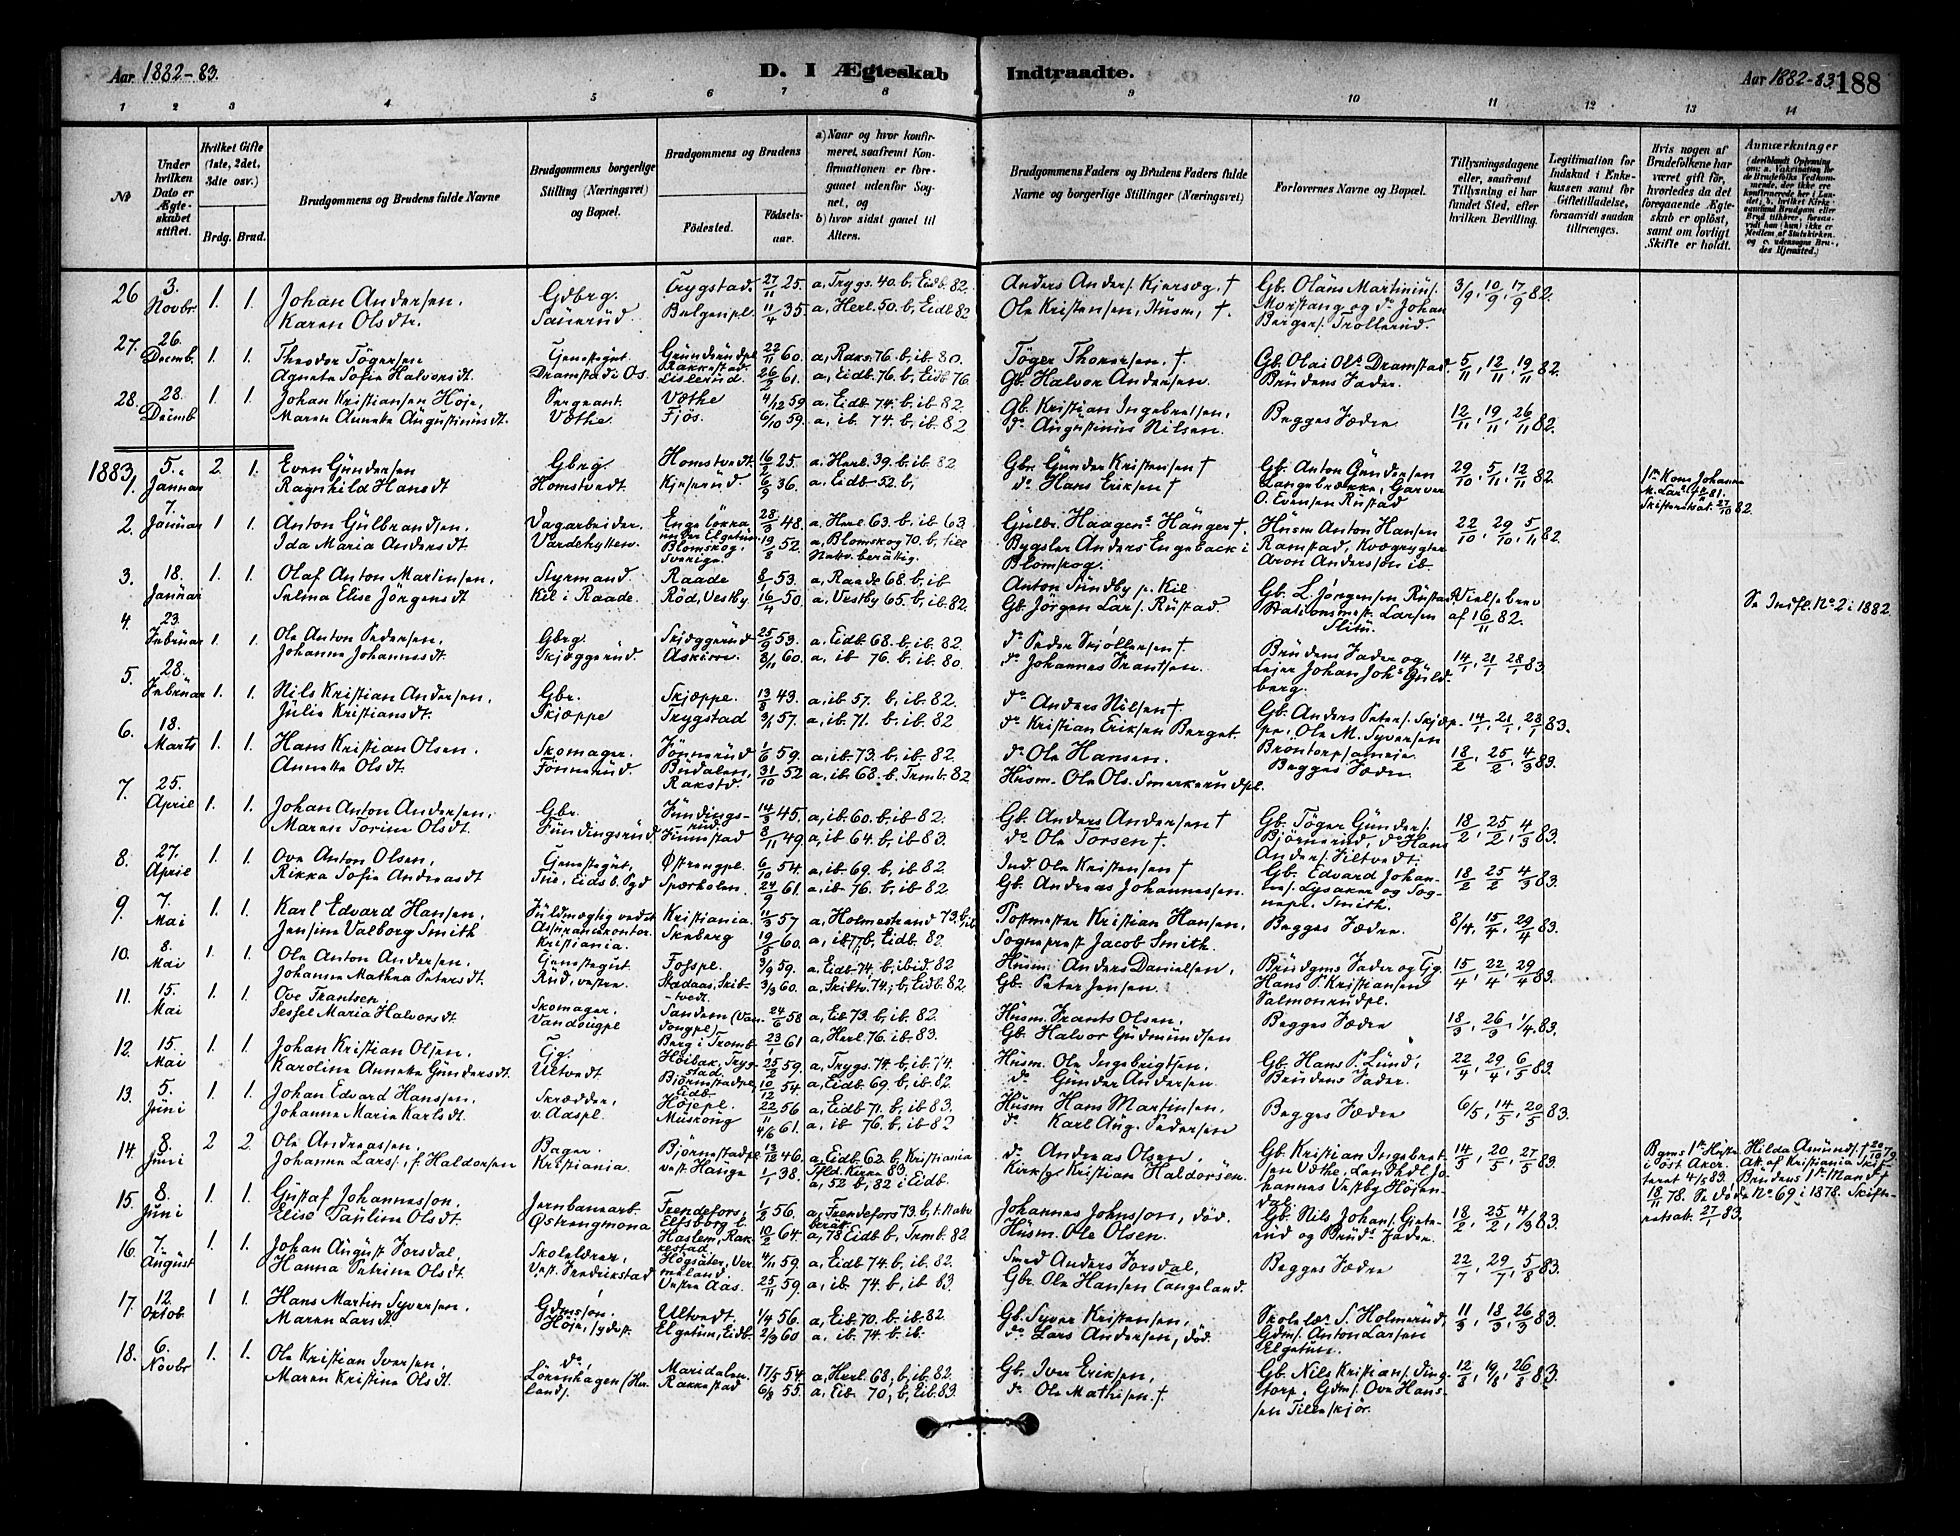 Aar 1882-83.
D. I Ægteskab Indtraadte.
Aar 1882-83. 188
1 2 3 4 5 6 7 8 9 10 11 12 13 14
No
Under hvilken Dato er Ægteskabet stiftet.
Hvilket Gifte (1ste, 2det, 3die osv.)
Brdg. Brud.
Brudgommens og Brudens fulde Navne
Brudgommens borgerlige Stilling (Næringsvei) og Bopæl.
Brudgommens og Brudens
Fødested. Fødselsaar.
a) Naar og hvor konfirmeret, saafremt Konfirmationen er foregaaet udenfor Sognet, og
b) hvor sidst gaaet til Alters.
Brudgommens Faders og Brudens Faders fulde Navne og borgerlige Stillinger (Næringsvei)
Forlovernes Navne og Bopæl.
Tillysningsdagene eller, saafremt Tillysning ei har fundet Sted, efter hvilken Bevilling.
Legitimation for Indskud i Enkekassen samt for Giftetilladelse, forsaavidt saadan tiltrænges.
Hvis nogen af Brudefolkene har været gift før, hvorledes da det foregaaende Ægteskab er opløst, samt om lovligt Skifte er holdt.
Anmærkninger
26 3. Novbr 1. 1. Johan Andersen, Gdbrg. Trygstad. 27/11 25. a, Trygs. 40. b, Eidb. 82. Anders Anders. Kjersæg, † Gb. Olaus Martinius 3/9, 10/9, 17/9 82.
Karen Olsdtr. Sauerud. Bulgenpl. 11/4 35. a, Herl. 50. b, Eidb 82 Ole Kristensen, Husm, †. Morstang og do Johan
Berger. Trollerud.
27. 26. Decmb. 1. 1. Theodor Tøgersen Tjenestegut. Grundsrudpl. Rakkestad. 22/11 60. a, Raks. 76. b, ib 80. Tøger Thorersen. †. Gb. Olai Ols. Dramstad 5/11, 12/11, 19/11 82.
Agnete Sofie Halvorsdt. Dramstad i Os. Lislerud. 26/2 61. a, Eidb. 76. b, Eidb 76 Gb. Halvor Andersen. Brudens Fader.
28. 28. Decmb 1. 1. Johan Kristiansen Høje, Sergeant. Vøthe 4/12 59 a, Eidb 74. b, ib 82. Gb. Kristian Ingebretsen, Begges Fædre. 12/11, 19/11, 26/11 82.
Maren Annette Augustinusdt. Vøthe. Fjøs. 6/10 59. a, ib. 74. b, ib 82 do Augustinus Nilsen.
1883
1. 5. Januar 2. 1. Even Gundersen Gbrg. Homstvedt. 16/2 25. a, Herl. 39. b, ib 82 Gbr. Gunder Kristensen † Gb. Anton Gundersen 29/10, 5/11, 12/11 82. 1ste Kone Johanne
Ragnhild Hansdt Homstvedt. Kjeserud. 6/9 36. a, Eidb. 52. b, do Hans Eriksen † Langebrække, Garver
O. Evensen Rustad Skifteretsat. 27/10 82
2. 7. Januar 1 1. Anton Gulbrandsen, Vagarbeider. 28/3 48. a, Herl 63. b, ib 63. Gulbr. Haagens. Hunger †. Husm Anton Hansen 22/10, 29/10, 5/11 82.
Ida Maria Andersdt Vardehytten. Blomskog, Sverige. 19/5 52. a, Blomskog 70. b, till Nattv. beråttig. Bygsler Anders Engeback i Blomskog. Ramstad, Kvægrygter
Aron Andersson ib
3. 18. Januar 1. 1. Olaf Anton Martinsen, Styrmand. Raade 8/1 53. a, Raade 68. b, ib Anton Sundby p. Kil Gb. L. Jørgensen Rustad. Vielsebrev
Selma Elise Jørgensdt Kil i Raade. Rød, Vestby 16/4 50. a, Vestby 65. b, ib 82. Gb. Jørgen Lars. Rustad Stationsmest. Larsen af 16/11 82. Se Indfl. No 2 i 1882.
Slitu.
4. 23. Februar 1. 1. Ole Anton Pedersen, Gbrg. Skjæggerud 25/9 53. a, Eidb. 68. b, ib. 82. do Peder Skjøllersen † Brudens Fader og 14/1, 21/1, 28/1 83.
Johanne Johannesdt. Skjæggerud. Askisve. 8/11 60. a, ib 76. b, ib 80. do Johannes Frantsen. Leier Johan Johs Guldberg.
5. 28. Februar 1. 1. Nils Kristian Andersen, Gbr. Skjæppe. 13/8 43. a, ib. 57. b, ib. 82. do Anders Nilsen †. Gb. Anders Peters. Skjæppe, Ole M. Syversen 14/1, 21/1, 28/1 83.
Julie Kristiansdt. Skjæppe Trygstad 3/1 57. a, ib. 71. b, ib. 82 do Kristian Eriksen Berget. Brontorpsameie
6. 18. Marts 1. 1. Hans Kristian Olsen, Skomager. Fønnerud 1/6 59. a, ib. 73. b, ib. 82. do Ole Hansen. Begges Fædre. 18/2, 25/2, 4/3 83.
Annette Olsdt. Fønnerud. Budalen, Rakstd. 31/10 52 a, ib 68. b. Trmb. 82 Husm. Ole Ols. Smerkerudpl.
7. 25. April 1. 1. Johan Anton Andersen, Gbr. Fundingsrud. 14/3 45. a, ib 60. b. ib 82. Gb. Anders Andersen † Gb. Tøger Gunders. 18/2, 25/2, 4/3 83.
Maren Torine Olsdt. Fundingsrud Funnstad 8/11 49 a, ib 64. b, ib 83. do Ole Torsen †. Bjørnerud, do Hans
Anders. Siltvedt.
8. 27. April 1. 1. Ove Anton Olsen, Tjenestegut, Østrengpl. 6/10 54. a, ib 69. b, ib 82. Ind. Ole Kristensen † Gb. Edvard Johan- 18/2 25/2 4/3 83.
Rikka Sofie Andreasdt Tue, Eidsb. Sgd Sporholen. 24/9 61 a, ib 76. b, ib 82 Gb. Andreas Johannessen. nes. Lysaker og Sognepr. Smith.
9. 7. Mai 1. 1. Karl Edvard Hansen, Fuldmægtig ved et Kristiania. 11/3 57 a, Holmestrand 73. b, ib Postmester Kristian Hansen, Begges Fædre. 8/4, 15/4, 29/4 83.
Jensine Valborg Smith Assurancekontor. Kristiania. Skeberg 19/8 60. a, ib 77, b, Eidb. 82. Sogneprest Jacob Smith.
10. 8. Mai 1. 1. Ole Anton Andersen, Tjenestegut Fosspl. 3/9 59. a, Eidb 74, b, ibid. 82 Husm. Anders Danielsen, Brudgms Fader og Gg. 15/4, 22/4, 29/4 83.
Johanne Mathea Petersdt. Rud, vestre Stadaas, Skibtvedt. 3/3 60. a, Skibtv. 74. b, Eidb 82. Gb. Peter Jensen. Hans P. Kristiansen
Salmonrudpl.
11. 15. Mai 1. 1. Ove Frantsen, Skomager, Sandem (Vandougpl) 24/6 58 a, Eib 73. b, ib 82. Husm. Frants Olsen, Begges Fædre 18/3, 26/3, 1/4 83.
Sessel Maria Halvorsdt. Vandougpl Berg i Tromb. 23/1 61 a, Herl. 76. ib. 83. Gb. Halvor Gudmundsen
12. 15. Mai 1. 1. Johan Kristian Olsen, Gg. Høibak, Trygstad. 25/2 59. a, Trygs. 74. b, ib. 74. Husm. Ole Ingebrigtsen, Gb. Hans P. Lund, 22/4, 29/4, 6/5 83.
Karoline Annette Gundersdt. Ultvedt Bjørnstadpl, Eidb. 10/12 54. a, Eidb. 69. b, ib 82. do Gunder Andersen. Brudens Fader.
13. 5. Juni 1. 1. Johan Edvard Hansen, Skrædder, Højepl. 22/11 56 a, Eidb 71. b, ib 83. Husm Hans Martinsen, Begges Fædre 6/5, 14/5, 20/5 83.
Johanne Marie Karlsdt. v. Aaspl. Muskoug 4/6 61. a, ib 76. b, ib 82 do Karl Aug. Pedersen
14. 8. Juni 2 2. Ole Andreassen, Bager. Bjørnstadpl 13/12 46. a, Eidb. 62. b, Kristiania do Andreas Olsen. Gb. Kristian Ingebret- 14/5, 20/5, 27/5 83. Bgms 1ste Hustru Hilda Amunds. † 20/10 79.
Johanne Lars. f. Haldorsen Kristiania. vest Hauge 1/1 38. a, 52 b, 82 i Eidb. Kirkes. Kristian Haldorsen. sen Vøthe, Landhdl. Johannes Vestby Højendal. i øst. Aker. Att. af Kristiania Skifteret 4/5 83. Brudens 1ste Mand †
18/11 78. Se døde No 69 i 1878. Skifteretsat. 27/1 83.
15 8. Juni 1. 1. Gustaf Johannesson, Jernbanearb. Frendefors, Elfsborg l. 1/2 56. a, Frendefors 73. b, t. Nattv berät. Johannes Johnson, död. Gb. Nils Johans. Gjete- 18/2, 25/2, 4/3 83.
Elise Pauline Olsdt Østrengmona Haslem, Rakkestad. 10/2 64. a, 78 Eidb b, Trmb. 82 Husm. Ole Olsen. rud og Bruds Fader.
16. 7. August 1. 1. Johan August Forsdal, Skolelærer, Högsäter, Vermeland. 4/11 59 a, Eidb 74. b, ib 82. Smed Anders Forsdal, Begges Fædre 22/7, 29/7, 5/8 83.
Hanna Petrine Olsdt. Vest. Fredrikstad Vesten Aas. 25/11 59. a, ib. 74. b, ib 83 Gbr. Ole Hansen Tangeland.
17. 12. Oktob. 1 1. Hans Martin Syversen, Gdmsøn. Ultvedt. 1/4 56. a, Eib. 70. b, ib. 82 Gb. Syver Kristensen, Skolelær. S. Holmerud, 11/3, 18/3, 26/3 83.
Maren Larsdt Høje, sydest. Elgetun, Eidb. 2/3 60 a, ib. 74. b, ib. do Lars Andersen, död. Gdm. Anton Larsen
Elgetun.
18. 6. Novbr 1. 1. Ole Kristian Iversen, do, Maridalen. 17/5 54. a, Herl 68, b, ib 82. Gb. Iver Eriksen, Gb. Nils Kristians. Ting- 12/8, 19/8, 26/8 83
Maren Kristine Olsdt. Lørenhagen (Herlands. Rakkestad 6/3 55. a, Eib 70, b, Eib. 83. do Ole Mathisen. †. torp, Gdm. Ove Hans-
sen Tileskjør.